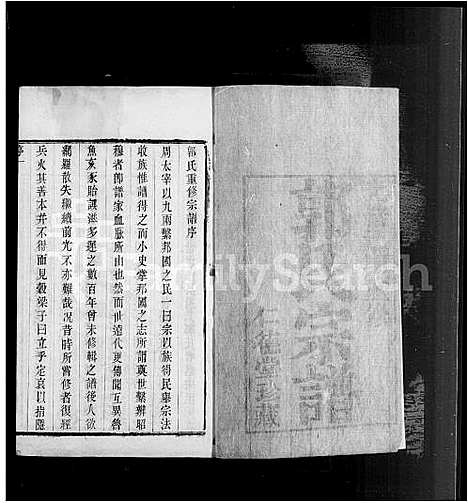 郭氏宗譜
仁德堂珍藏
郭氏重修宗譜序
周太宰以九兩繫邦國之民一曰宗以族得民舉宗法
收族惟譜得之而小史掌邦國之志所謂奠世繫辨昭
穆者卽譜家血脈所由也然而世遠代更傳聞互異魯
魚亥豕貽誤滋多運之數百年曾未修輯之譜後人欲
網羅散失繼續前光不亦難哉况昔時所嘗修者復經
兵火其善本幷不得而見穀梁子曰立乎定哀以指隱
序一
FamilySearch